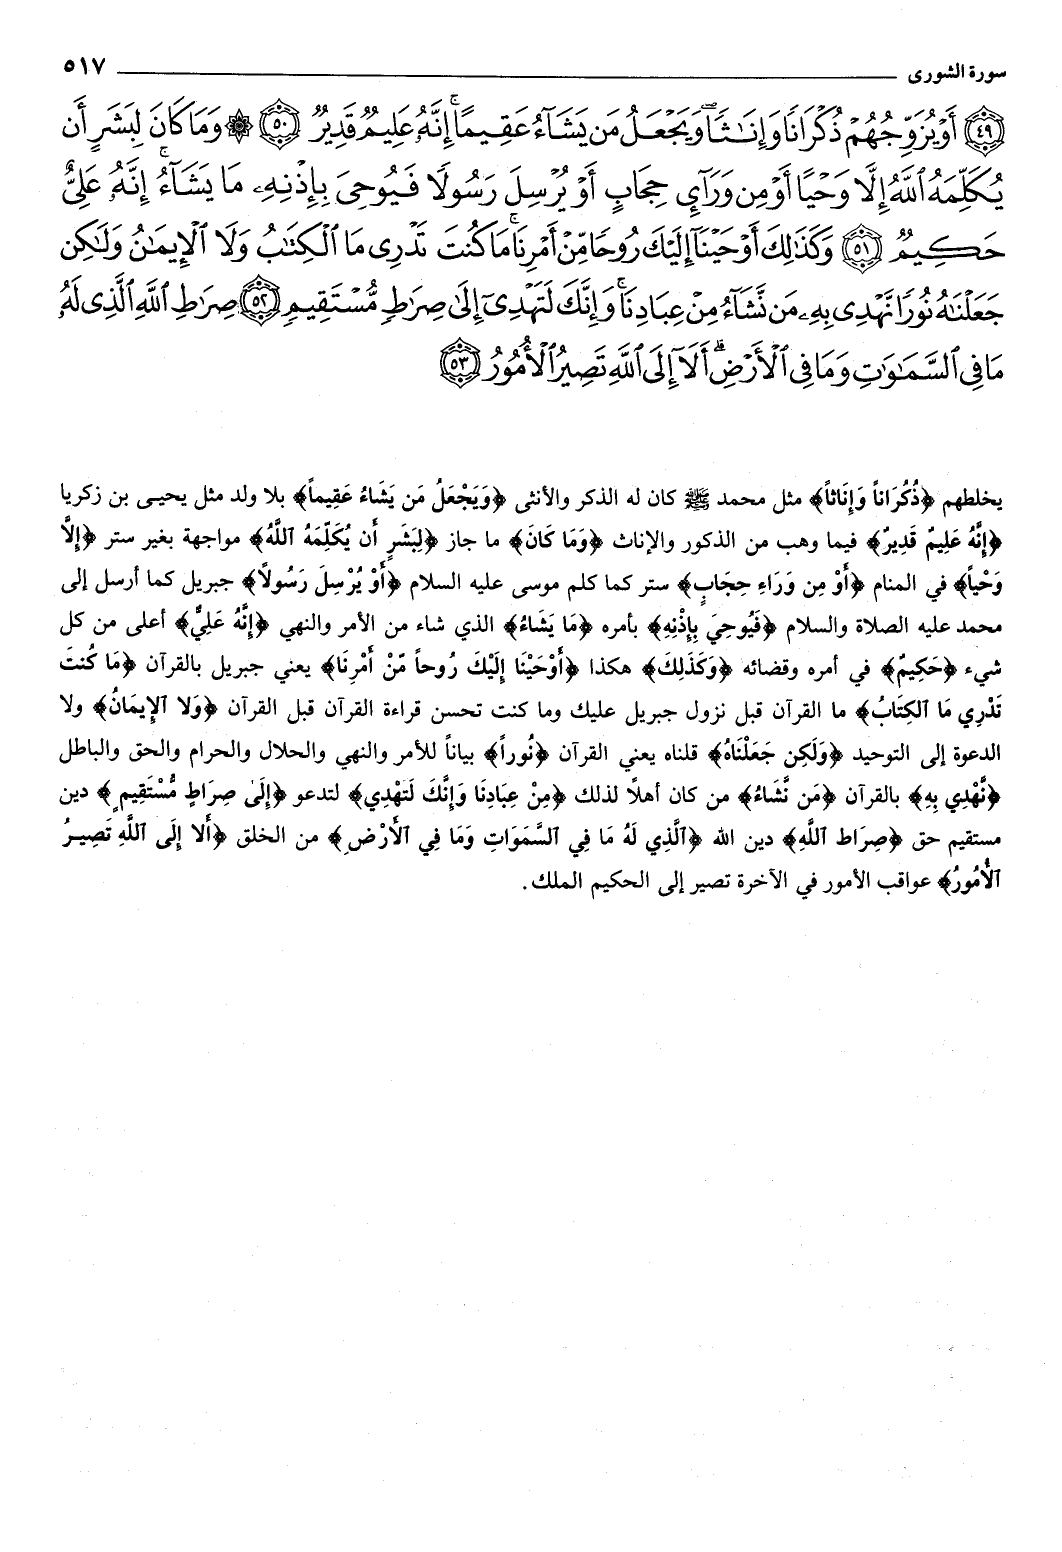 سورة الشورى ٥١٧
﴿٤٩﴾ أَوْ يُزَوِّجُهُمْ ذُكْرَانًا وَإِنَٰثًا ۖ وَيَجْعَلُ مَن يَشَآءُ عَقِيمًا ۚ إِنَّهُۥ عَلِيمٌ قَدِيرٌ ﴿٥٠﴾ ۞ وَمَا كَانَ لِبَشَرٍ أَن
يُكَلِّمَهُ ٱللَّهُ إِلَّا وَحْيًا أَوْ مِن وَرَآئِ حِجَابٍ أَوْ يُرْسِلَ رَسُولًا فَيُوحِىَ بِإِذْنِهِۦ مَا يَشَآءُ ۚ إِنَّهُۥ عَلِىٌّ
حَكِيمٌ ﴿٥١﴾ وَكَذَٰلِكَ أَوْحَيْنَآ إِلَيْكَ رُوحًا مِّنْ أَمْرِنَا ۚ مَا كُنتَ تَدْرِى مَا ٱلْكِتَٰبُ وَلَا ٱلْإِيمَٰنُ وَلَٰكِن
جَعَلْنَٰهُ نُورًا نَّهْدِى بِهِۦ مَن نَّشَآءُ مِنْ عِبَادِنَا ۚ وَإِنَّكَ لَتَهْدِىٓ إِلَىٰ صِرَٰطٍ مُّسْتَقِيمٍ ﴿٥٢﴾ صِرَٰطِ ٱللَّهِ ٱلَّذِى لَهُۥ
مَا فِى ٱلسَّمَٰوَٰتِ وَمَا فِى ٱلْأَرْضِ ۗ أَلَآ إِلَى ٱللَّهِ تَصِيرُ ٱلْأُمُورُ ﴿٥٣﴾
يخلطهم ﴿ذُكْرَاناً وَإِنَاثاً﴾ مثل محمد ﷺ كان له الذكر والأنثى ﴿وَيَجْعَلُ مَن يَشَاءُ عَقِيماً﴾ بلا ولد مثل يحيى بن زكريا
﴿إِنَّهُ عَلِيمٌ قَدِيرٌ﴾ فيما وهب من الذكور والإناث ﴿وَمَا كَانَ﴾ ما جاز ﴿لِبَشَرٍ أَن يُكَلِّمَهُ ٱللَّهُ﴾ مواجهة بغير ستر ﴿إِلَّا
وَحْياً﴾ في المنام ﴿أَوْ مِن وَرَاءِ حِجَابٍ﴾ ستر كما كلم موسى عليه السلام ﴿أَوْ يُرْسِلَ رَسُولاً﴾ جبريل كما أرسل إلى
محمد عليه الصلاة والسلام ﴿فَيُوحِيَ بِإِذْنِهِ﴾ بأمره ﴿مَا يَشَاءُ﴾ الذي شاء من الأمر والنهي ﴿إِنَّهُ عَلِيٌّ﴾ أعلى من كل
شيء ﴿حَكِيمٌ﴾ في أمره وقضائه ﴿وَكَذَلِكَ﴾ هكذا ﴿أَوْحَيْنَا إِلَيْكَ رُوحاً مِّنْ أَمْرِنَا﴾ يعني جبريل بالقرآن ﴿مَا كُنتَ
تَدْرِي مَا ٱلكِتَابُ﴾ ما القرآن قبل نزول جبريل عليك وما كنت تحسن قراءة القرآن قبل القرآن ﴿وَلَا ٱلإِيمَانُ﴾ ولا
الدعوة إلى التوحيد ﴿وَلَكِن جَعَلْنَاهُ﴾ قلناه يعني القرآن ﴿نُوراً﴾ بياناً للأمر والنهي والحلال والحرام والحق والباطل
﴿نَّهْدِي بِهِ﴾ بالقرآن ﴿مَن نَّشَاءُ﴾ من كان أهلاً لذلك ﴿مِنْ عِبَادِنَا وَإِنَّكَ لَتَهْدِي﴾ لتدعو ﴿إِلَىٰ صِرَاطٍ مُّسْتَقِيمٍ﴾ دين
مستقيم حق ﴿صِرَاط ٱللَّهِ﴾ دين الله ﴿ٱلَّذِي لَهُ مَا فِي ٱلسَّمَوَاتِ وَمَا فِي ٱلأَرْضِ﴾ من الخلق ﴿أَلَا إِلَى ٱللَّهِ تَصِيرُ
ٱلأُمُورُ﴾ عواقب الأمور في الآخرة تصير إلى الحكيم الملك.